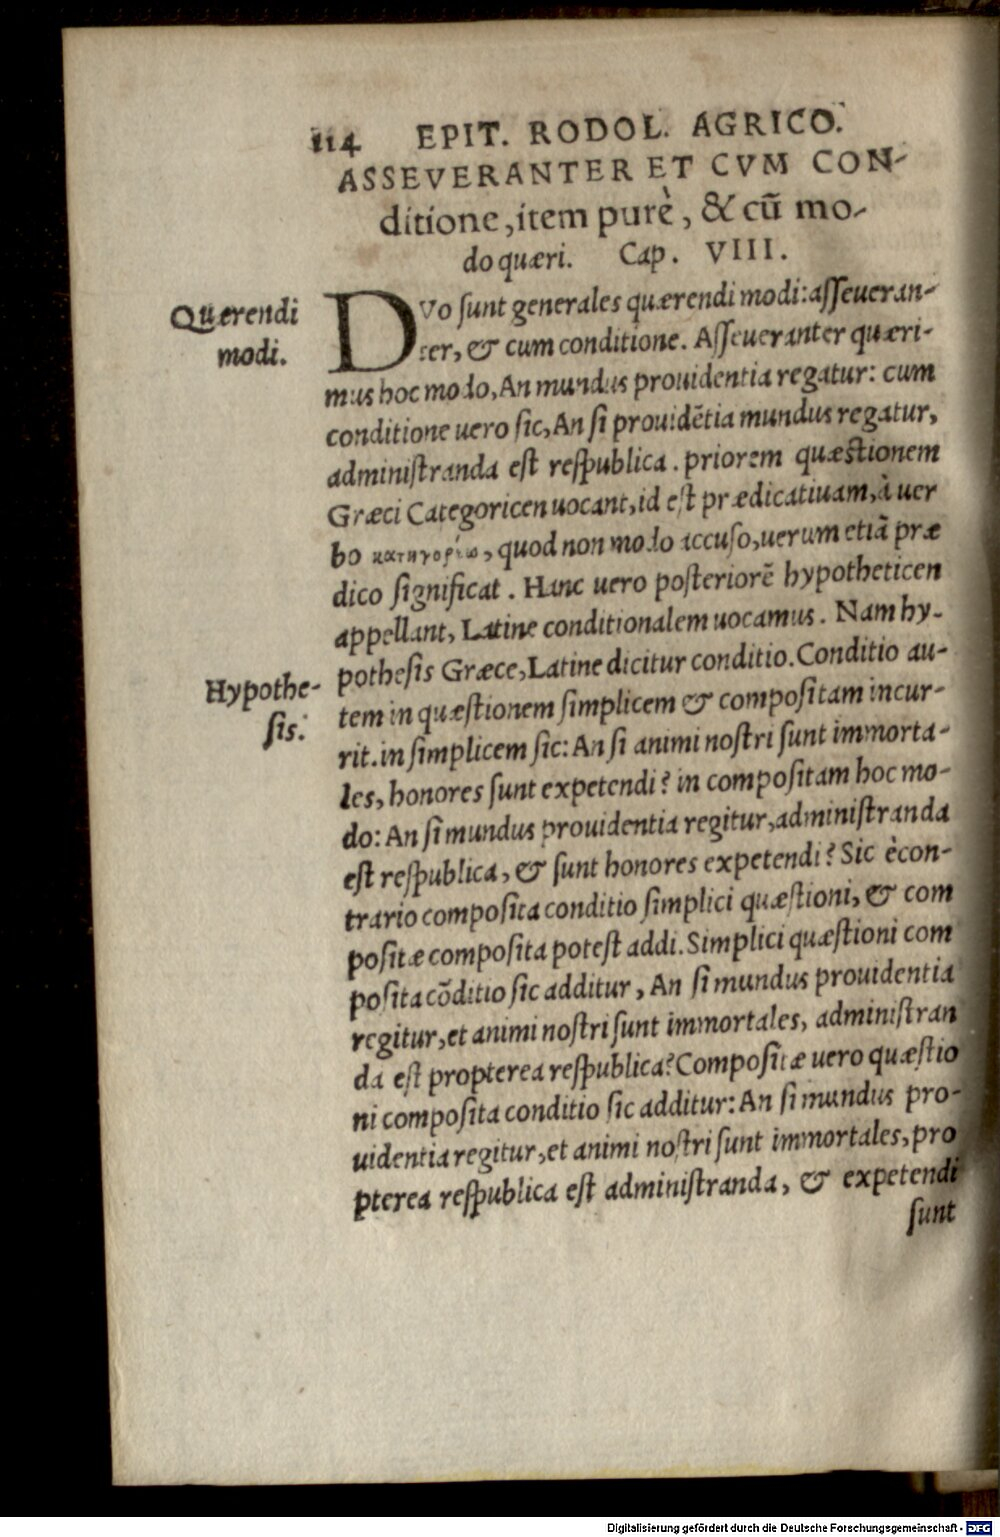 114 EPIT. RODOL. AGRICO.
ASSEVERANTER ET CVM CON-
ditione, item purè, & cũ mo-
do quæri. Cap. VIII.
Quærendi
modi.
DVo sunt generales quærendi modi: asseueran-
ter, & cum conditione. Asseueranter quæri-
mus hoc modo, An mundus prouidentia regatur: cum
conditione uero sic, An si prouidẽtia mundus regatur,
administranda est respublica. priorem quæstionem
Græci Categoricen uocant, id est prædicatiuam, à uer
bo κατηγορέω, quod non modo accuso, uerum etiã præ
dico significat. Hanc uero posteriorẽ hypotheticen
appellant, Latine conditionalem uocamus. Nam hy-
Hypothe-
sis.
pothesis Græce, Latine dicitur conditio. Conditio au-
tem in quæstionem simplicem & compositam incur-
rit. in simplicem sic: An si animi nostri sunt immorta-
les, honores sunt expetendi? in compositam hoc mo-
do: An si mundus prouidentia regitur, administranda
est respublica, & sunt honores expetendi? Sic ècon-
trario composita conditio simplici quæstioni, & com
positæ composita potest addi. Simplici quæstioni com
posita cõditio sic additur, An si mundus prouidentia
regitur, et animi nostri sunt immortales, administran
da est propterea respublica? Compositæ uero quæstio
ni composita conditio sic additur: An si mundus pro-
uidentia regitur, et animi nostri sunt immortales, pro
pterea respublica est administranda, & expetendi
sunt
Digitalisierung gefördert durch die Deutsche Forschungsgemeinschaft - DFG